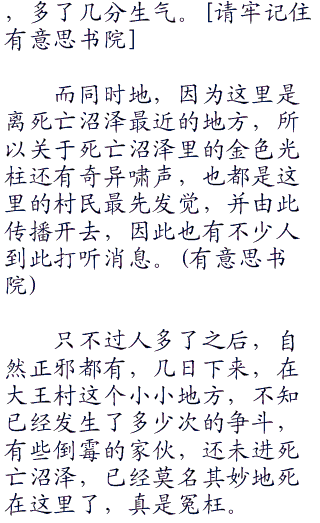 ，多了几分生气。[请牢记住
有意思书院]
而同时地，因为这里是
离死亡沼泽最近的地方，所
以关于死亡沼泽里的金色光
柱还有奇异啸声，也都是这
里的村民最先发觉，并由此
传播开去，因此也有不少人
到此打听消息。(有意思书
院)
只不过人多了之后，自
然正邪都有，几日下来，在
大王村这个小小地方，不知
已经发生了多少次的争斗，
有些倒霉的家伙，还未进死
亡沼泽，已经莫名其妙地死
在这里了，真是冤枉。